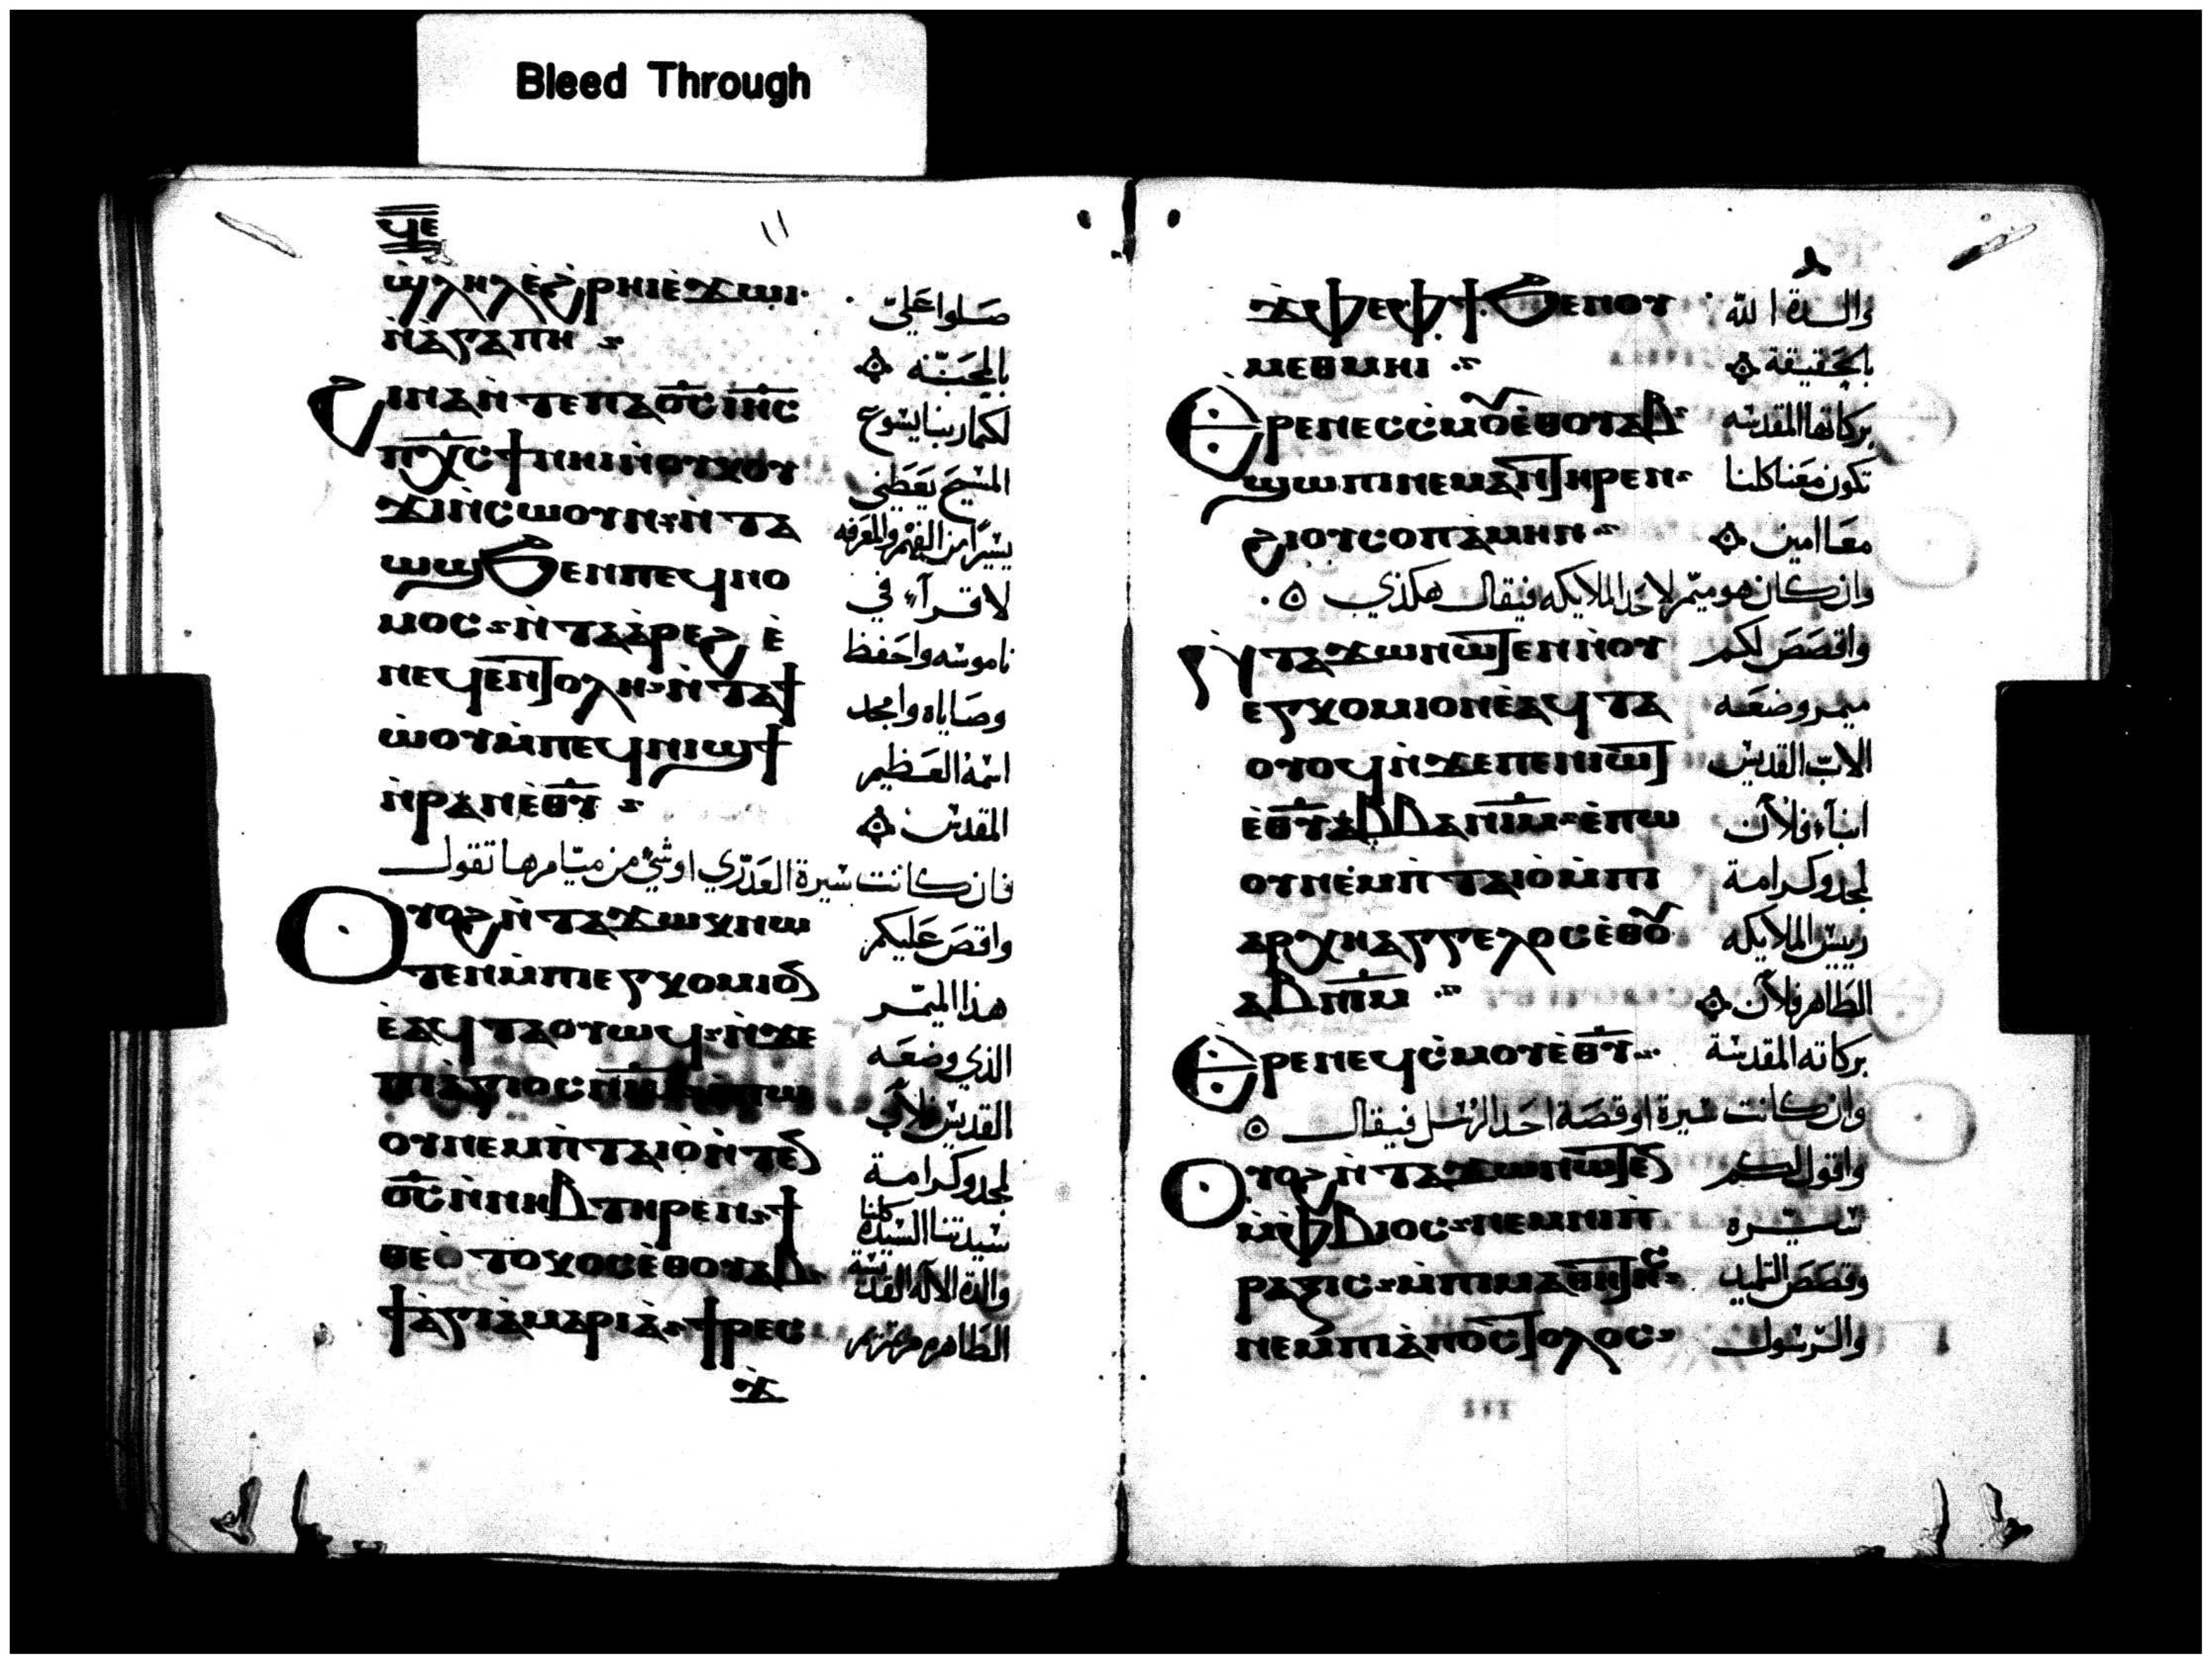 Bleed Through
ϥⲉ
١١
ϣ̀ⲗⲏⲗⲉ̀ϩ̀ⲣⲏⲓⲉ̀ϫⲱⲓ· صَلوا عَليّ
ⲛ̀ⲁ̀ⲅⲁⲡⲏ بالمحَبّه
ϩⲓⲛⲁⲛ̀ⲧⲉⲡⲁⲟ̅ⲥ̅ ⲓⲏ̅ⲥ لكما ربنا يسوع
ⲡⲭ̅ⲥ ϯⲛⲏⲓⲛ̀ⲟⲩⲕⲟⲩ المسيح يَعَطيني
ϫⲓⲛ̀ⲥⲱⲟⲩⲛ ⲛ̀ⲧⲁ يسيرًا من الفهم والمعَرفه
ⲱϣϧⲉⲛⲡⲉϥⲛⲟ لاقرآء في
ⲙⲟⲥ ⲛ̀ⲧⲁⲁ̀ⲣⲉϩ ⲉ̀ ناموسه واحَفظ
ⲛⲉϥⲉⲛⲧⲟⲗⲏ ⲛ̀ⲧⲁϯ وصَاياه وامجد
ⲱ̀ⲟⲩⲙ̀ⲡⲉϥⲛⲓϣϯ اسمه العَظيم
ⲛ̀ⲣⲁⲛⲉ̀ⲑ̅ⲩ̅ المقدس
فان كانت سيرة العَدّري او شئ من ميّامرها تقول
ⲟⲩⲟϩ ⲛ̀ⲧⲁϫⲱⲕⲛⲱ واقصَ عَليكم
ⲧⲉⲛⲙ̀ⲡⲓⲉⲅⲕⲟⲙⲓⲟ̅ هذا الميّمر
ⲉ̀ⲁϥⲧⲁⲟⲩⲱϥ ⲛ̀ϫⲉ الذي وضعَه
ⲡⲓⲁ̀ⲅⲓⲟⲥ القديس
ⲟⲩⲛⲉⲙⲡ̀ⲧⲁⲓⲟ̀ⲛ̀ⲧⲉ̅ لمجد وكرامة
ⲟ̅ⲥ̅ⲛ̀ⲛⲏⲃ ⲧⲏⲣⲉⲛ ϯ سيدتنا كلنا السيدة
ⲑⲉⲟ̀ⲧⲟⲕⲟⲥ ⲉ̀ⲑⲟⲩⲁⲃ والدة الاله القديسة
ϯⲁ̀ⲅⲓⲁ̀ ⲙⲁⲣⲓⲁ̀ ϯⲣⲉⲥ الطَاهره مرتمريم
ϫ
ϫⲫⲉⲫϯ ϧⲉⲛⲟⲩ والدة الله
ⲙⲉⲑⲙⲏⲓ بالحَقيقة
ⲉⲣⲉⲛⲉⲥⲥ̀ⲙⲟ̅ⲉ̀ⲑⲟⲩⲁⲃ بركاتها المقدسه
ϣⲱⲡⲓⲛⲉⲙⲁⲛⲧⲏⲣⲉⲛ تكون معَنا كلنا
ϩⲓⲟⲩⲥⲟⲡ ⲁ̀ⲙⲏⲛ معَا امين
وان كان هو ميّمر لاحَد الملايكه فيقال هكذي
ⲛ̀ⲧⲁϫⲱⲛⲱⲧⲉⲛⲛ̀ⲟⲩ واقصَصَ لكم
ⲉⲅⲕⲟⲙⲓⲟⲛⲉ̀ⲁϥⲧⲁ ميمر وضعَه
ⲟⲩⲟϥ ⲛ̀ϫⲉⲡⲉⲛⲓⲱⲧ الاب القديس
ⲉ̀ⲑ̅ⲩⲁⲃ ⲃⲁⲛⲓⲙ ⲉ̀ⲡⲱ انبآء فلآن
ⲟⲩⲛⲉⲙⲡ̀ⲧⲁⲓⲟ̀ⲙ̀ⲡⲓ لمجد وكرامة
ⲁⲣⲭⲏⲁⲅⲅⲉⲗⲟⲥⲉ̀ⲑⲟ̅ رييس الملايكه
ⲁⲃ ⲛⲓⲙ الطَاهر فلآن
ⲉⲣⲉⲛⲉϥⲥ̀ⲙⲟⲩⲉ̀ⲑ̅ⲩ̅ بركاته المقدسَة
وان كانت سيرة او قصَة احَد الرسل فيقال
ⲟⲩⲟϩ ⲛ̀ⲧⲁϫⲱⲛⲱⲧⲉ̅ واقول لكم
ⲙ̀ⲫⲃⲓⲟⲥ ⲛⲉⲙⲛⲓⲡ̀ سيّره
ⲣⲁⲝⲓⲥ ⲙ̀ⲡⲓⲙⲁⲑⲏⲧⲏⲥ وقصَصَ التلميد
ⲛⲉⲙⲡⲓⲁ̀ⲡⲟⲥⲧⲟⲗⲟⲥ والرسول